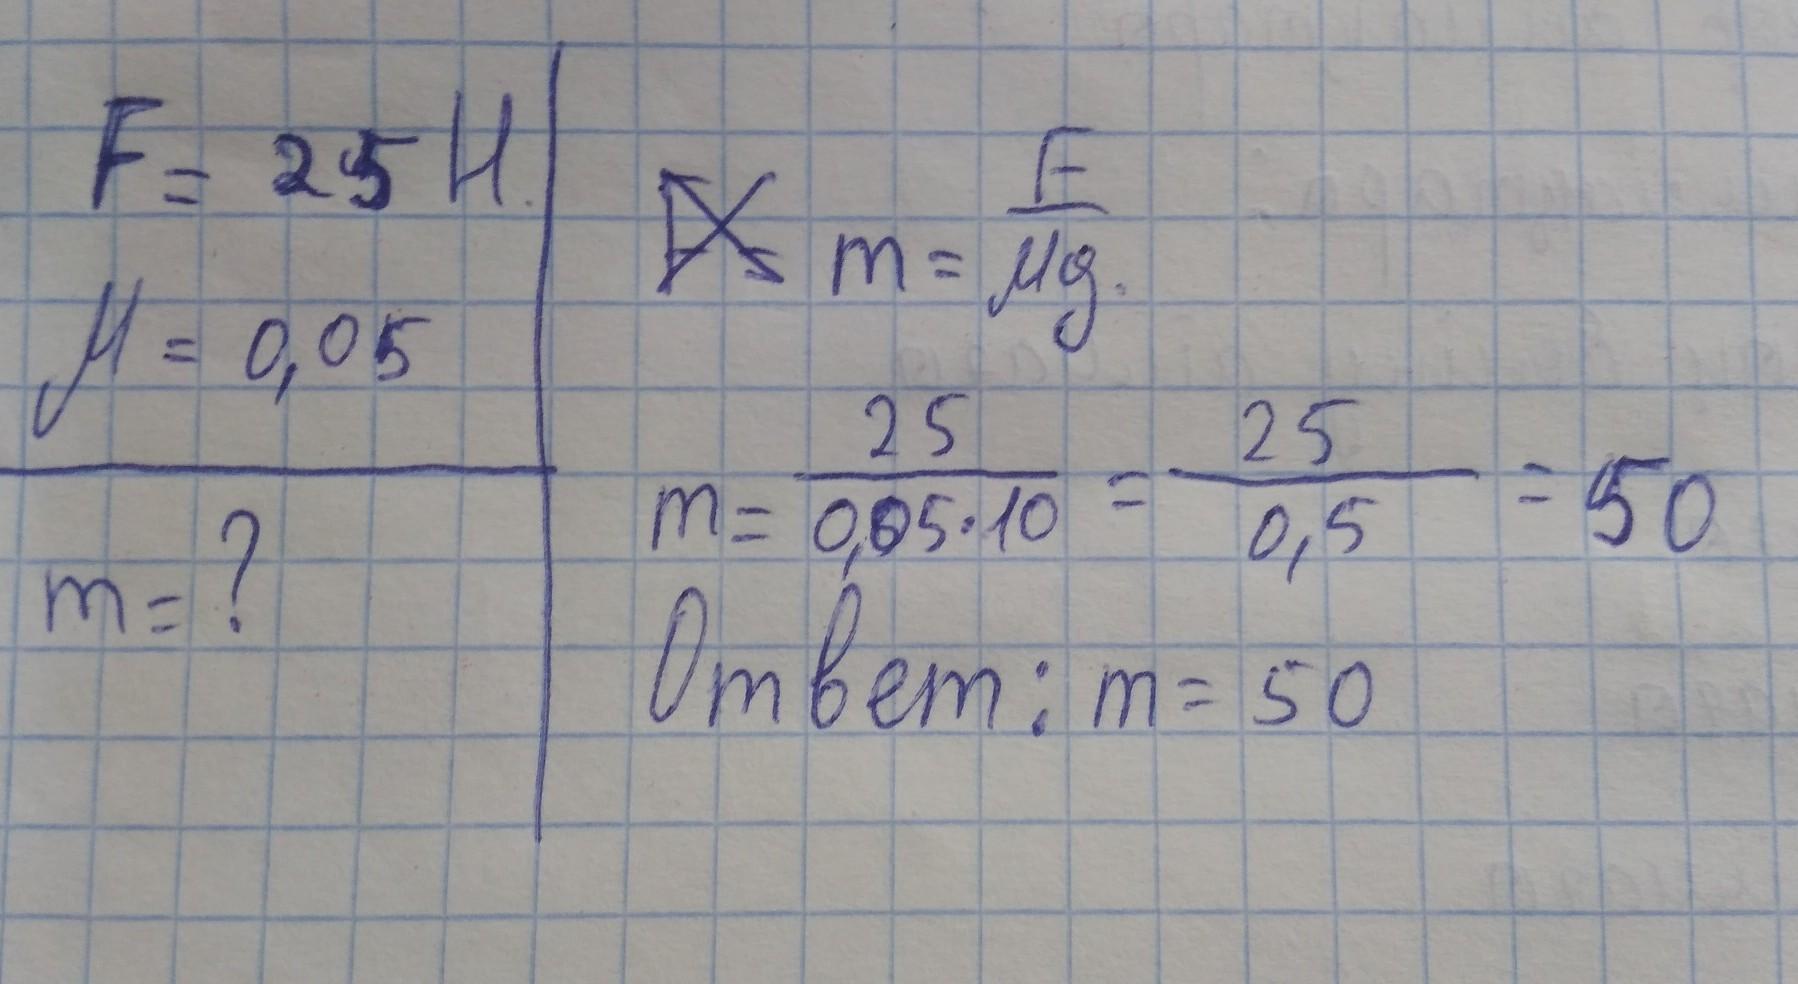 F = 25 Н.
μ = 0,05
m = ?
m = F/μg.
m = 25/0,05·10 = 25/0,5 = 50
Ответ: m = 50